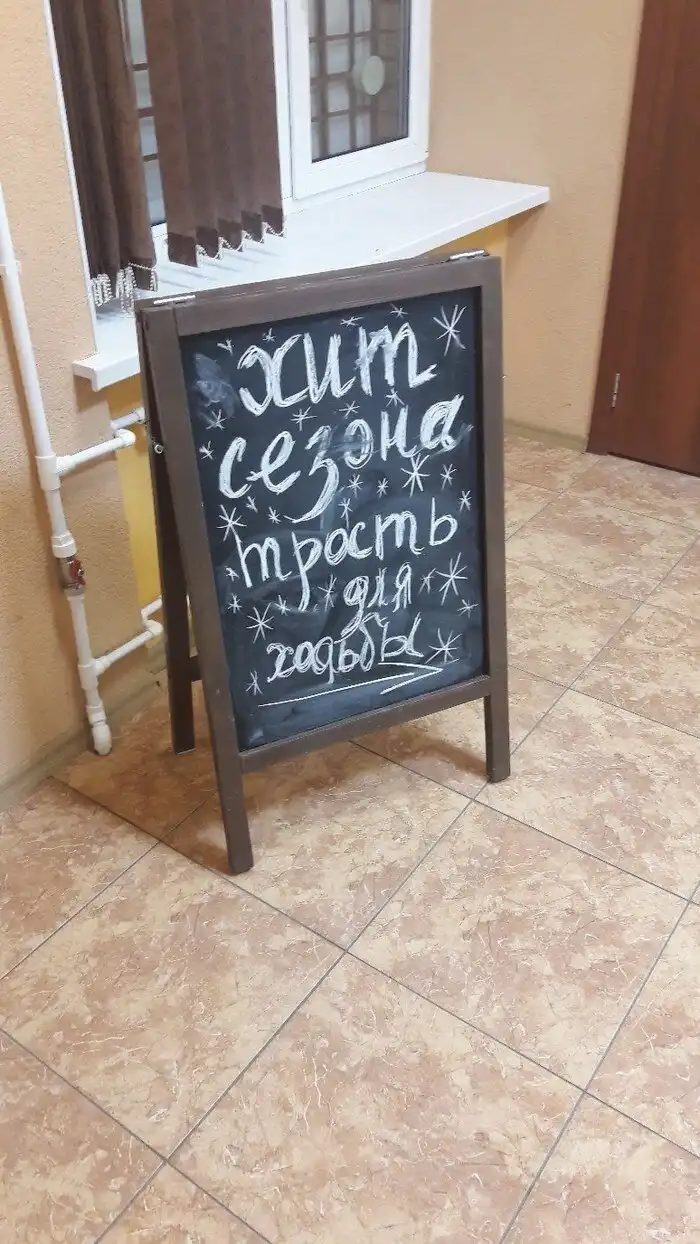 хит
сезона
трость
для
ходьбы